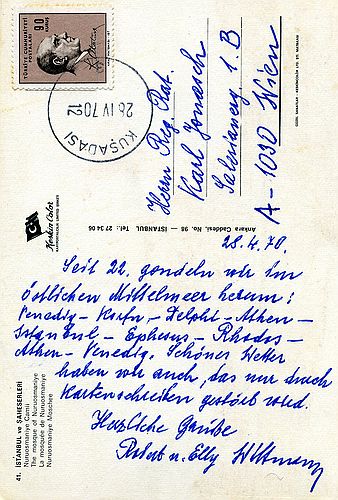 TÜRKİYE CUMHURİYETİ
POSTALARI
90
KURUŞ
28 IV 70 12
KUŞADASI
Herrn Reg. Rat.
Karl Jonasch
Salesianerg. 1. B
A - 1030 Wien
Keskin Color
KARTPOSTALCILIK LIMITED ŞİRKETİ
Ankara Caddesi, No. 98 — İSTANBUL Tel: 27 34 06
28.4.70.
Seit 22. gondeln wir im
östlichen Mittelmeer herum:
Venedig – Korfu – Delphi – Athen –
Istanbul – Ephesus – Rhodos –
Athen – Venedig. Schönes Wetter
haben wir auch, das nur durch
Kartenschreiben gestört wird.
Herzliche Grüsse
Robert u. Elly Wittmann
41. İSTANBUL ve ŞAHESERLERİ
Nuruosmaniye Camii
The mosque of Nuruosmaniye
La mosquée de Nuruosmaniye
Nuruosmaniye Moschee